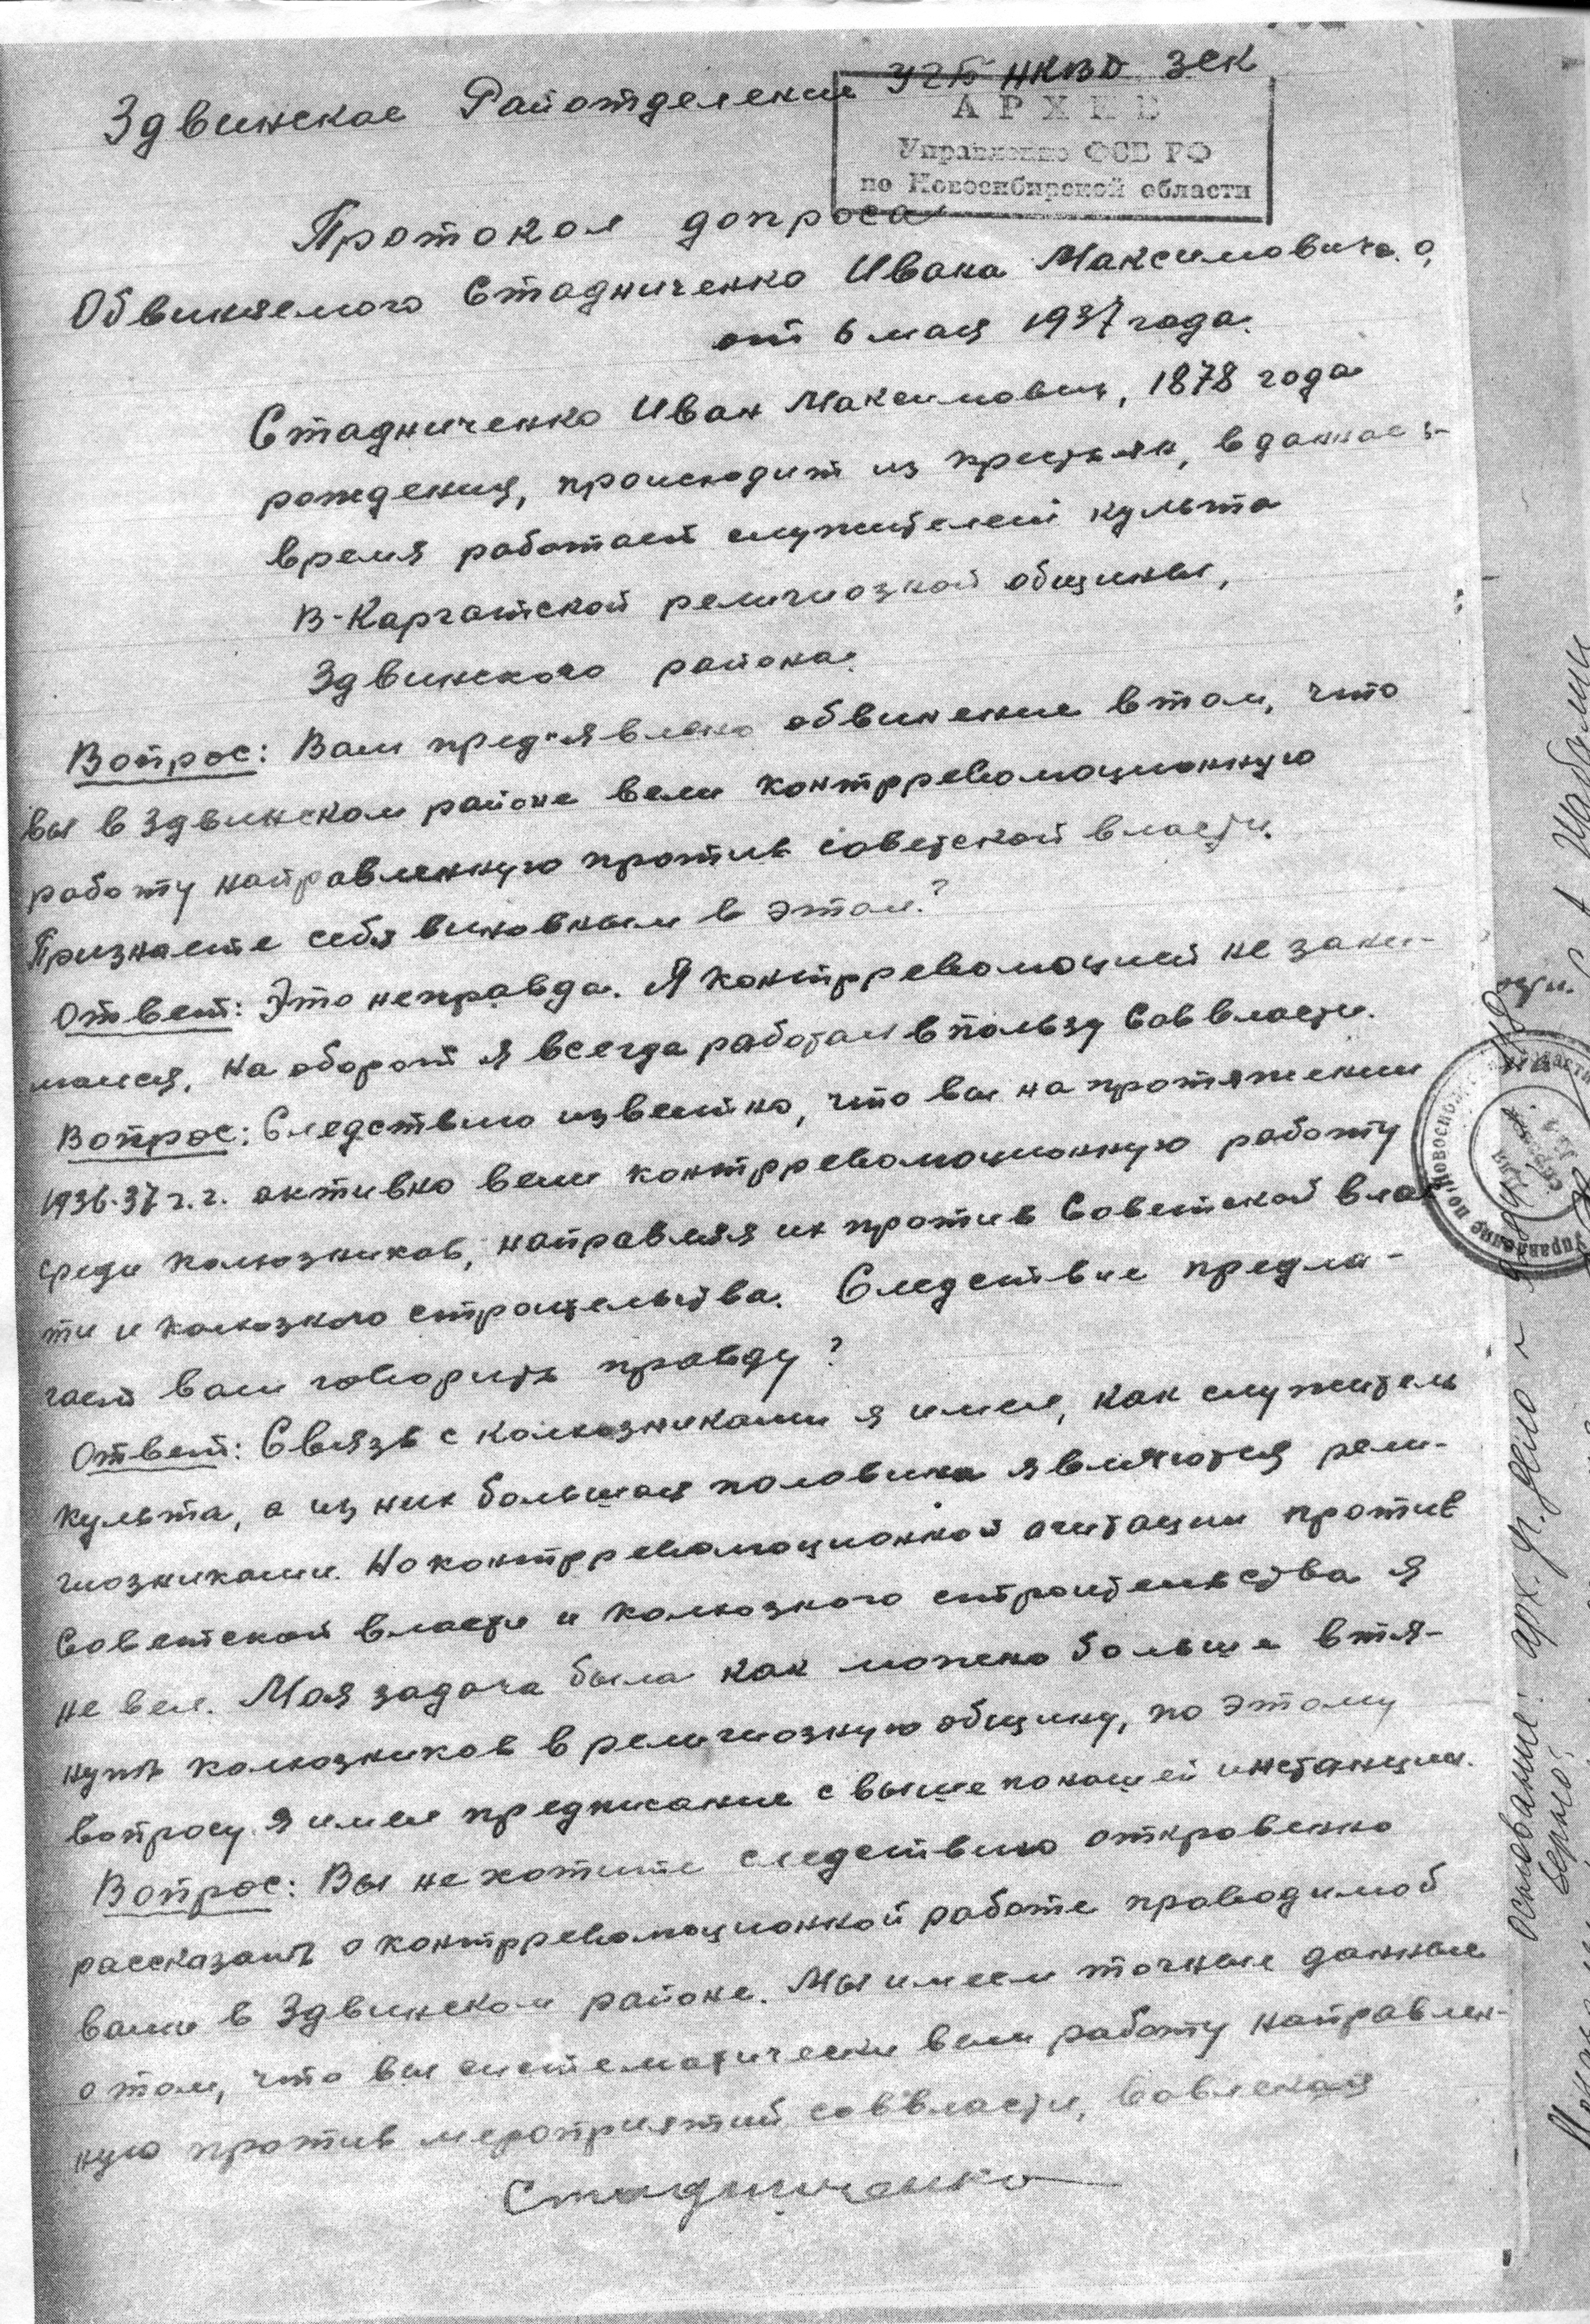 Здвинское Райотделение УГБ НКВД ЗСК
АРХИВ
Управление ФСБ РФ
по Новосибирской области
Протокол допроса
Обвиняемого Стадниченко Ивана Максимовича.
от 6 мая 1937 года.
Стадниченко Иван Максимович, 1878 года
рождения, происходит из крестьян, в данное
время работает служителем культа
В-Каргатской религиозной общины,
Здвинского района.
Вопрос: Вам пред"явлено обвинение в том, что
вы в Здвинском районе вели контрреволюционную
работу направленную против советской власти.
Признаете себя виновным в этом?
Ответ: Это неправда. Я контрреволюцией не зани-
мался, на оборот я всегда работал в пользу Соввласти.
Вопрос: Следствию известно, что вы на протяжении
1936-37 г.г. активно вели контрреволюционную работу
среди колхозников, направляя их против Советской влас
ти и колхозного строительства. Следствие предла-
гает вам говорить правду?
Ответ: Связь с колхозниками я имел, как служитель
культа, а из них большая половина являются рели-
гиозниками. Но контрреволюционной агитации против
Советской власти и колхозного строительства я
не вел. Моя задача была как можно больше втя-
нуть колхозников в религиозную общину, по этому
вопросу я имел предписание с выше
Вопрос: Вы не хотите следствию откровенно
рассказать о контрреволюционной работе проводимой
вами в Здвинском районе. Мы имеем точные данные
о том, что вы систематически вели работу направлен-
ную против мероприятий соввласти,
Стадниченко
Основание: арх. дело
верно:
Управление по Новосиб